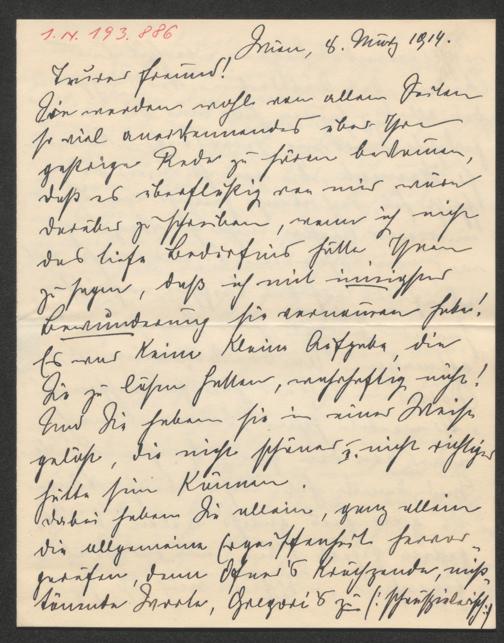 I. N. 193.886
Wien, 8. März 1914.
Teurer Freund!
Sie werden wohl von allen Seiten
so viel anerkennendes über Ihre
gestrige Rede zu hören bekommen,
daß es überflüßig von mir wäre
darüber zu schreiben, wenn ich nicht
das tiefe Bedürfnis hätte Ihnen
zu sagen, daß ich mit innigster
Bewunderung sie vernommen habe!
Es war keine kleine Aufgabe, die
Sie zu lösen hatten, wahrhaftig nicht!
Und Sie haben sie in einer Weise
gelöst, die nicht schöner u. nicht richtiger
hätte sein können.
Dabei haben Sie allein, ganz allein
die allgemeine Ergriffenheit hervor
gerufen, denn krächzende, miß
tönende Worte, Gregori's zu (: schauspielerisch :)